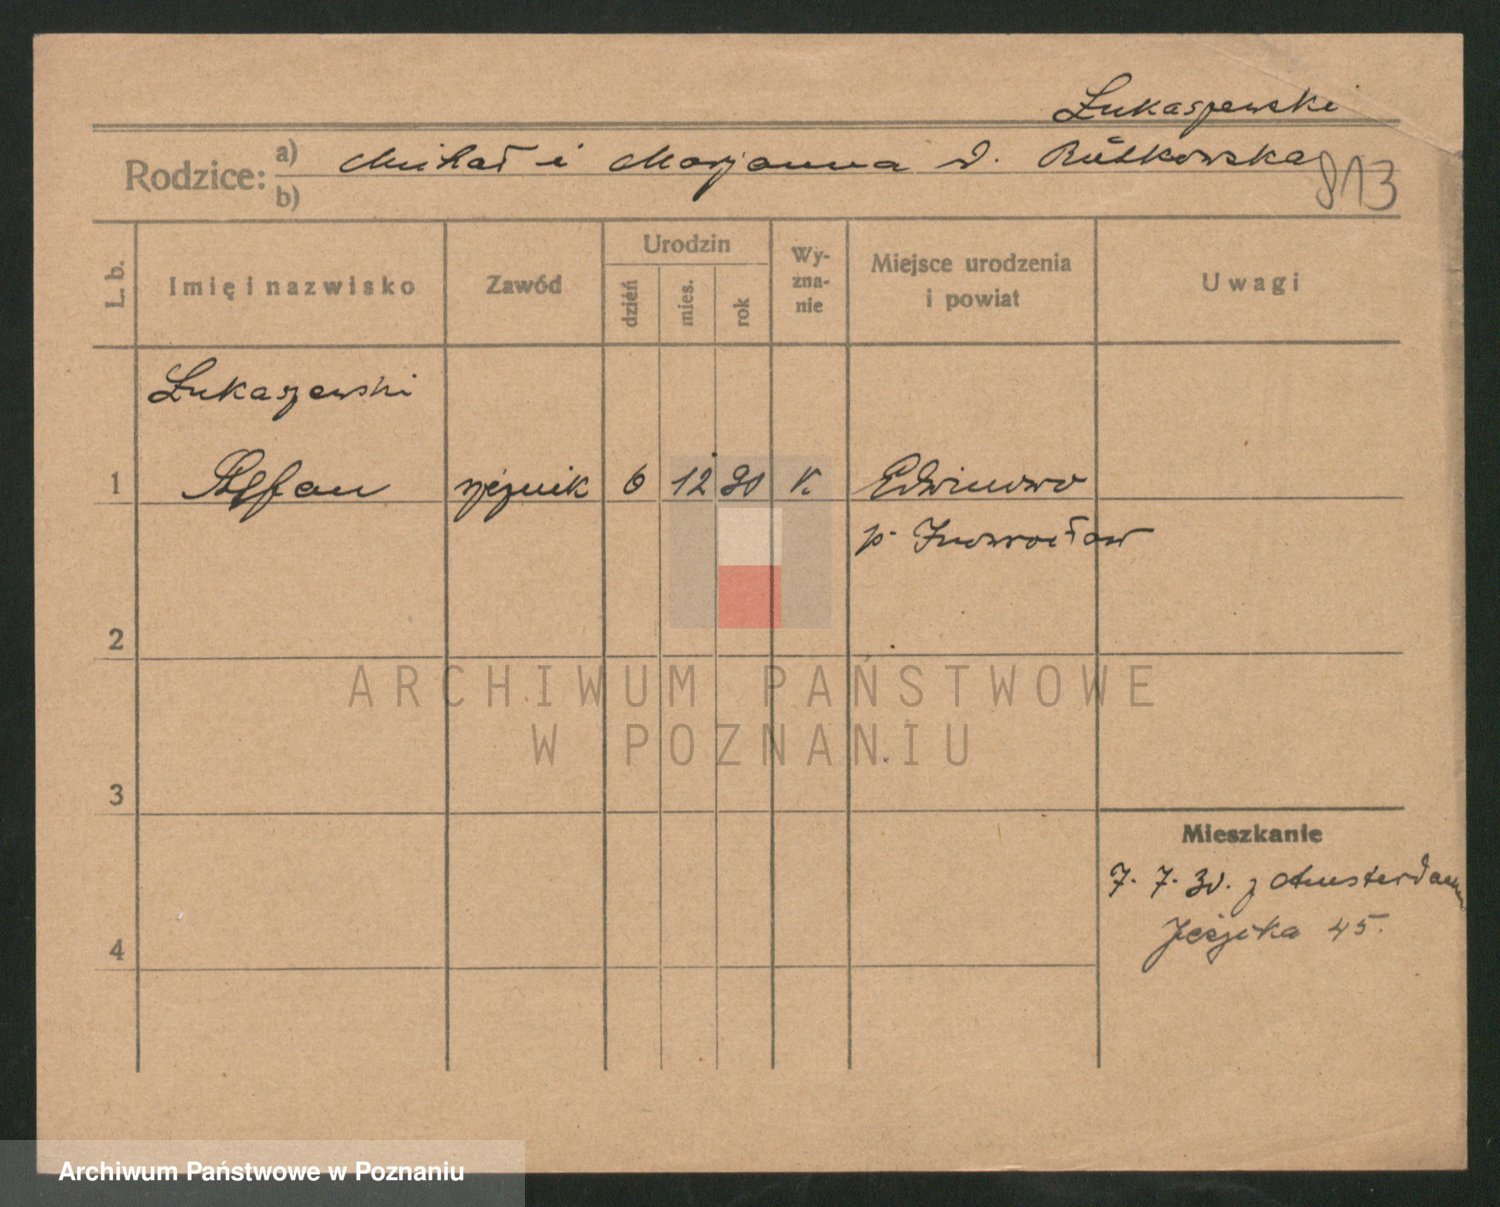 Łukaszewski
Rodzice: a) Michał i Marjanna d. Rutkowska
b)
813
L. b.
Imię i nazwisko
Zawód
Urodzin
dzień
mies.
rok
Wy-
zna-
nie
Miejsce urodzenia
i powiat
Uwagi
Łukaszewski
1 Stefan 6 12 K Edwinowo
p. Inowrocław
2
ARCHIWUM PAŃSTWOWE
W POZNANIU
3
Mieszkanie
7. 7. 30. z Amsterdamu
45.
4
Archiwum Państwowe w Poznaniu